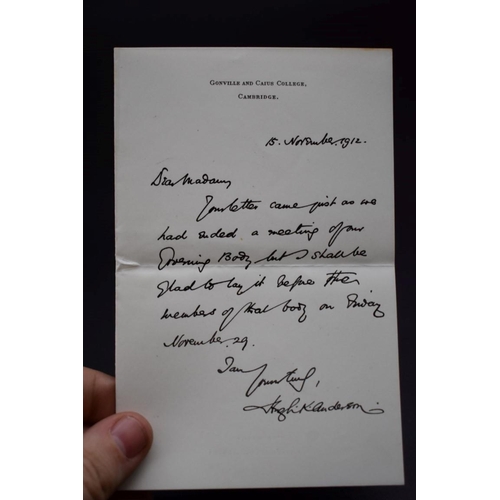 GONVILLE AND CAIUS COLLEGE,
CAMBRIDGE.
15. November. 1912.
Dear Madam,
Your letter came just as we
had ended a meeting of our
Governing Body but I shall be
glad to lay it before the
members of that body on Friday
November. 29.
I am
Yours truly,
Hugh K Anderson.